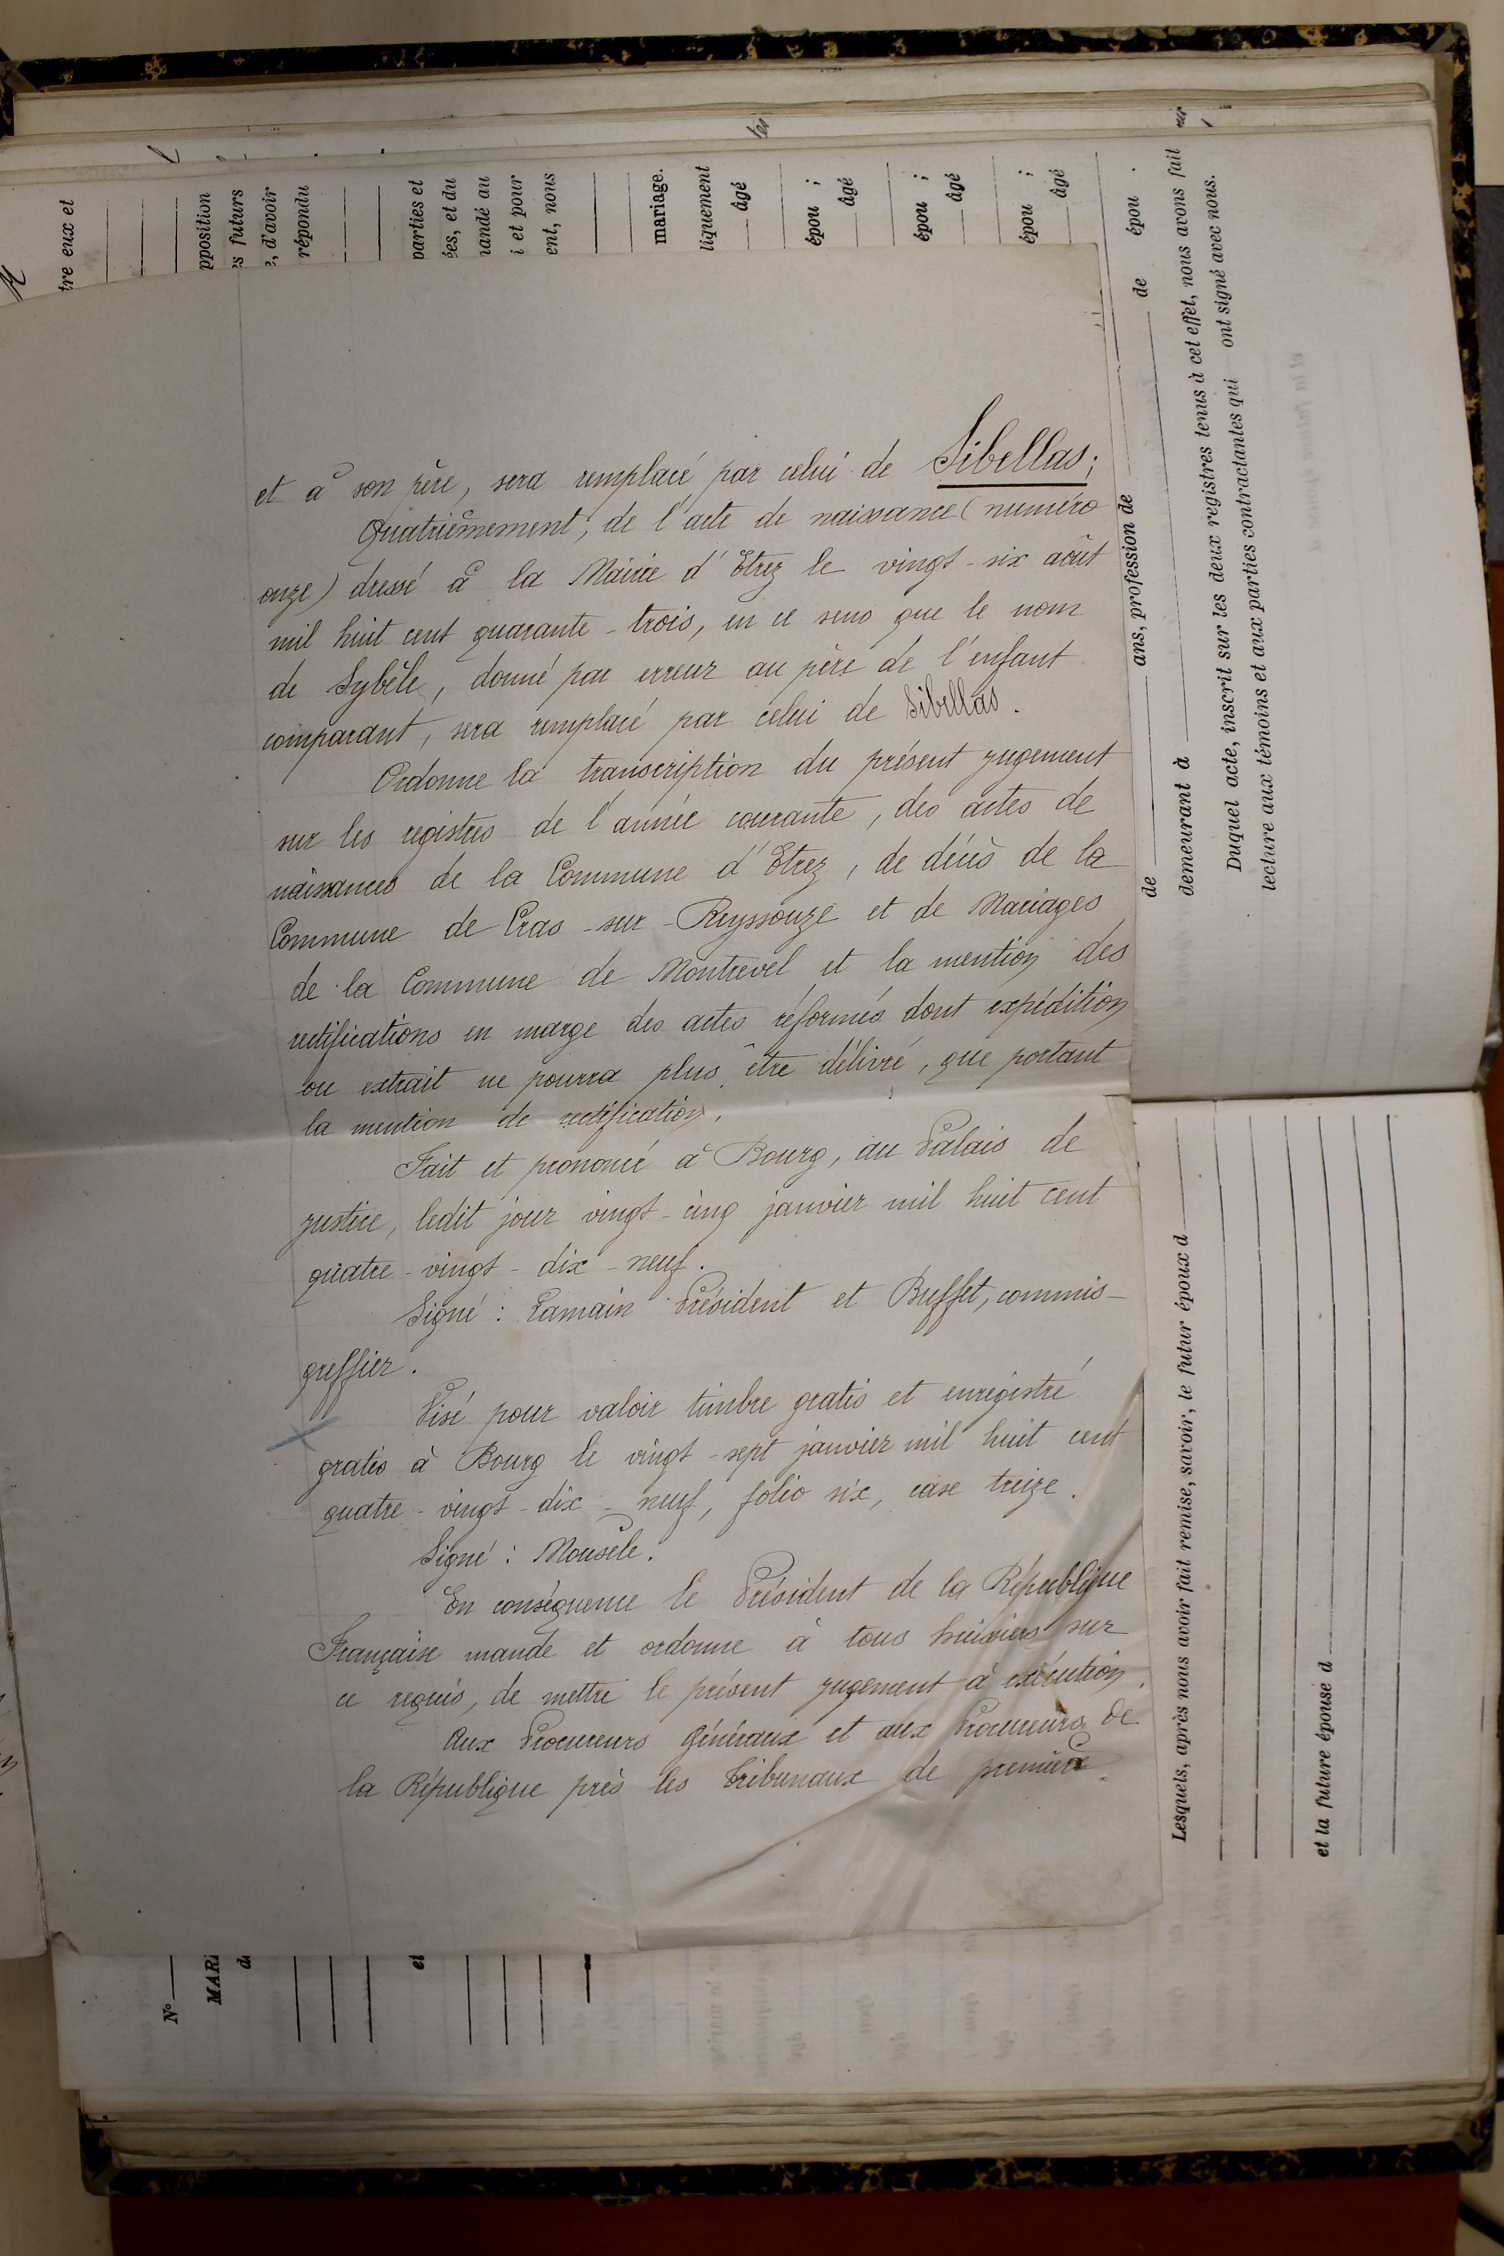 et à son père, sera remplacé par celui de Sibellas;
Quatrièmement, de l'acte de naissance (numéro
onze) dressé à la Mairie d'Etrez le vingt-six août
mil huit cent quarante-trois, en ce sens que le nom
de Sybèle, donné par erreur au père de l'enfant
comparant, sera remplacé par celui de Sibellas.
Ordonne la transcription du présent jugement
sur les registres de l'année courante, des actes de
naissances de la Commune d'Etrez, de décès de la
Commune de Cras-sur-Reyssouze et de Mariages
de la Commune de Montrevel et la mention des
rectifications en marge des actes réformés dont expédition
ou extrait ne pourra plus être délivré, que portant
la mention de rectification.
Fait et prononcé à Bourg, au Palais de
justice, ledit jour vingt-cinq janvier mil huit cent
quatre-vingt-dix-neuf.
Signé: Lamain Président et Buffet, commis-
greffier.
Visé pour valoir timbre gratis et enregistré
gratis à Bourg le vingt-sept janvier mil huit cent
quatre-vingt-dix-neuf, folio six, case treize.
Signé: Mousèle.
En conséquence le Président de la République
Française mande et ordonne à tous huissiers sur
ce requis, de mettre le présent jugement à exécution.
Aux Procureurs Généraux et aux Procureurs de
la République près les Tribunaux de première
tre eux et
pposition
s futurs
e, d'avoir
répondu
parties et
ées, et du
mandé au
i et pour
ent, nous
mariage.
liquement
âgé
épou ;
âgé
épou ;
âgé
épou ;
âgé
de ans, profession de de épou .
demeurant à
Duquel acte, inscrit sur les deux registres tenus à cet effet, nous avons fait
lecture aux témoins et aux parties contractantes qui ont signé avec nous.
N°
MARI
de
et
Lesquels, après nous avoir fait remise, savoir, le futur époux d
et la future épouse d